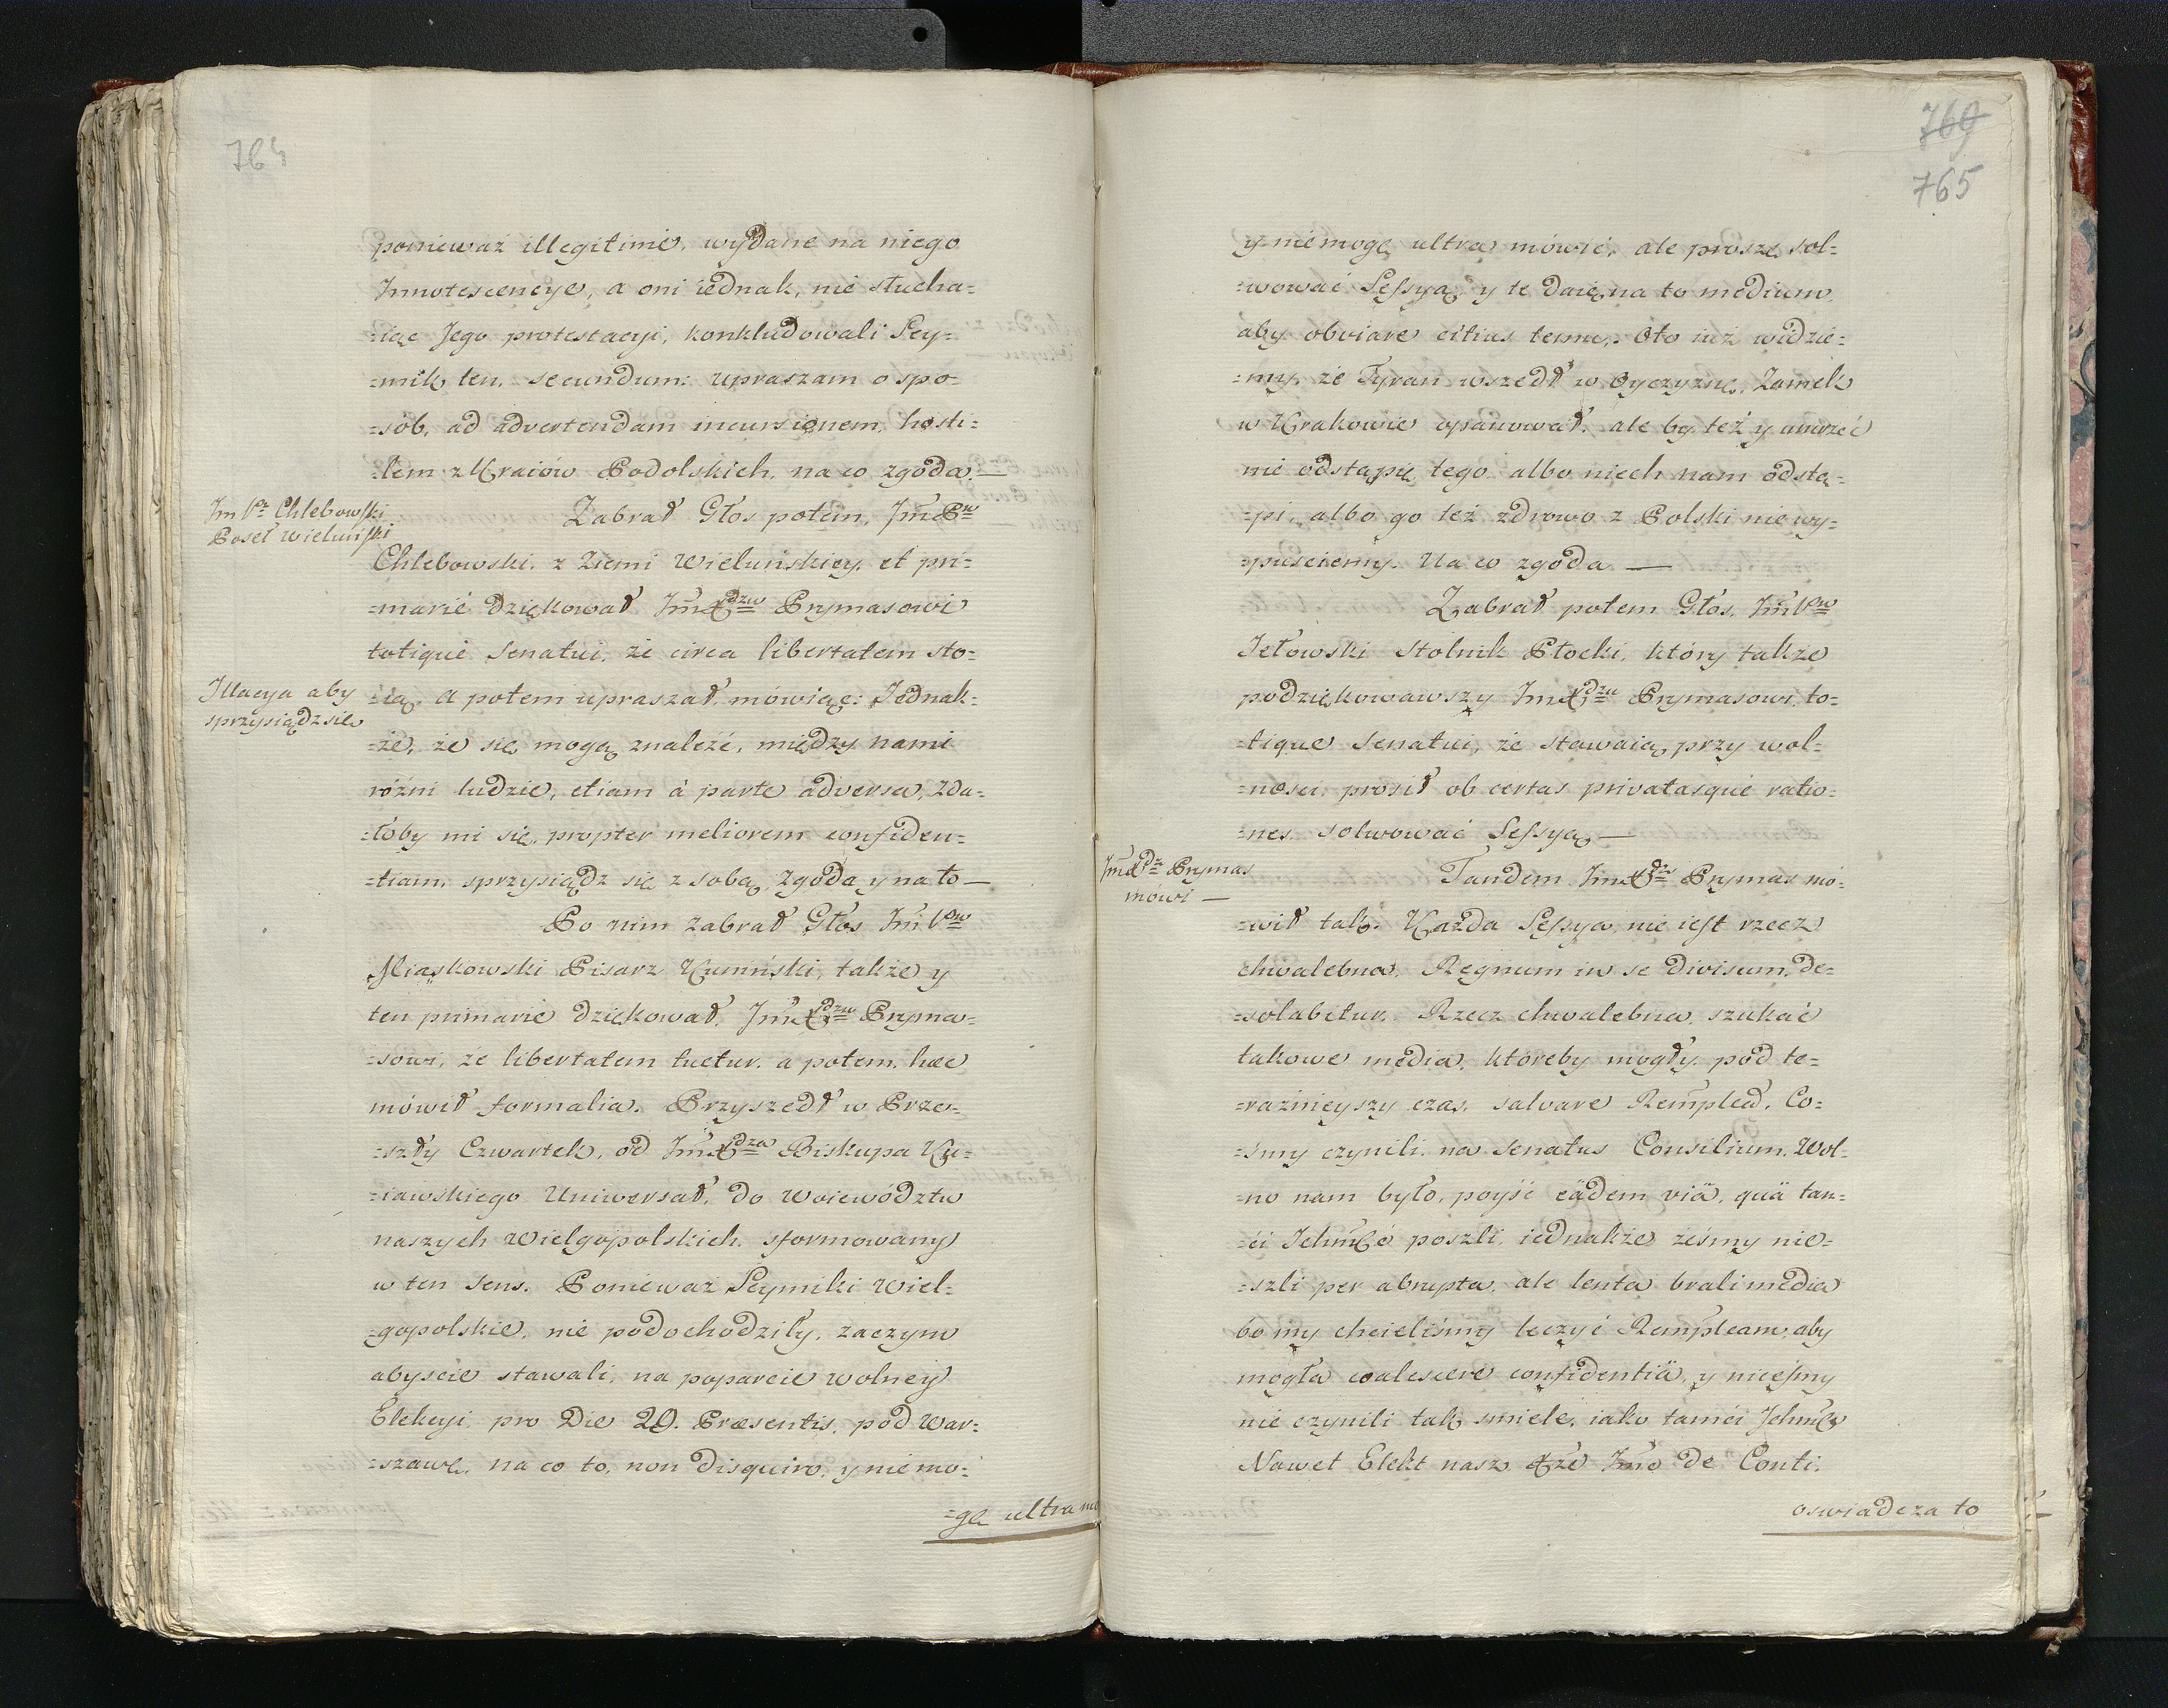 764
ponieważ illegitimé, wydane na niego
Innotescencye, a oni iednak, nie słucha=
=iąc Jego protestacyi, konkludowali Sey=
=mik ten, secundum: upraszam o spo=
=sób, ad advertendam incursionem, hosti=
=lem z Kraiów Podolskich, na co zgoda.—
Jm Pn Chlebowski
Poseł wieluński
Zabrał Głos potem, Jm Pn
Chlebowski, z Ziemi Wieluńskiey, et pri=
=marié dziękował JmXdzu Prymasowi
totiqué Senatui, że circa libertatem sto=
Illacya aby
sprzysiądz sie
=ią, a potem upraszał, mówiąc: Jednak=
=że, że się mogą znaleźć, między nami
różni ludzie, etiam à parte adversa, Zda=
=łoby mi się, propter meliorem confiden=
=tiam, sprzysiądz się z sobą, Zgoda y na to—
Po nim zabrał Głos Jm Pn
Miaskowski Pisarz Kcniński, także y
ten primarié dziękował, JmXdzu Pryma=
=sowi, że libertatem tuetur, a potem, haec
mówił formalia. Przyszedł w Prze=
=szły Czwartek, od JmXdza Biskupa Ku=
=iawskiego Uniwersał, do Woiewództw
naszych Wielgopolskich, sformowany
w ten sens. Ponieważ Seymiki Wiel=
=gopolskie, nie podochodziły, zaczym
abyscie stawali, na poparcie wolney
Elekcyi, pro Die 29. Præsentis, pod War=
=szawę, na co to, non disquiro, y nie mo=
=gę ultra mó
769
765
y nie mogę ultra mówić, ale proszę sol=
=wować Sessyą, y te daię na to medium
aby obviare citius temu. Oto iuż widzie=
=my, że Tyran wszedł w Oyczyznę, Zamek
w Krakowie opanował, ale by też y umrzeć
nie odstąpię tego albo niech nam odstą=
=pi, albo go też zdrowo z Polski nie wy=
=puściemy. Na co zgoda —
Zabrał potem Głos, Jm Pn
Jełowski Stolnik Płocki, który także
podziękowawszy JmXdzu Prymasowi, to=
=tique Senatui, że stawaią, przy wol=
=ności, prosił ob certas privatasqué ratio=
=nes solwować Sessyą —
JmXdz Prymas
mówi —
Tandem JmXdz Prymas mó=
=wił tak. Każda Sessya, nie iest rzecz
chwalebna, Regnum in se divisum, de=
=solabitur. Rzecz chwalebna, szukać
takowe media, któreby mogły, pod te=
=raźnieyszy czas, salvare Rempleă. Co=
=smy czynili, na Senatus Consilium. Wol=
=no nam było, poyść eâdem viâ, quâ tam=
=ci Ichmść poszli, iednakże żeśmy nie=
=szli per abrupta, ale lenta brali media
bo my chcieliśmy leczyć Rempleam, aby
mogła coalescere confidentiâ, y nieesmy
nie czynili tak smiele, iako tamci Ichmść
Nawet Elekt nasz Xże Jmć de Conti,
oswiadcza to